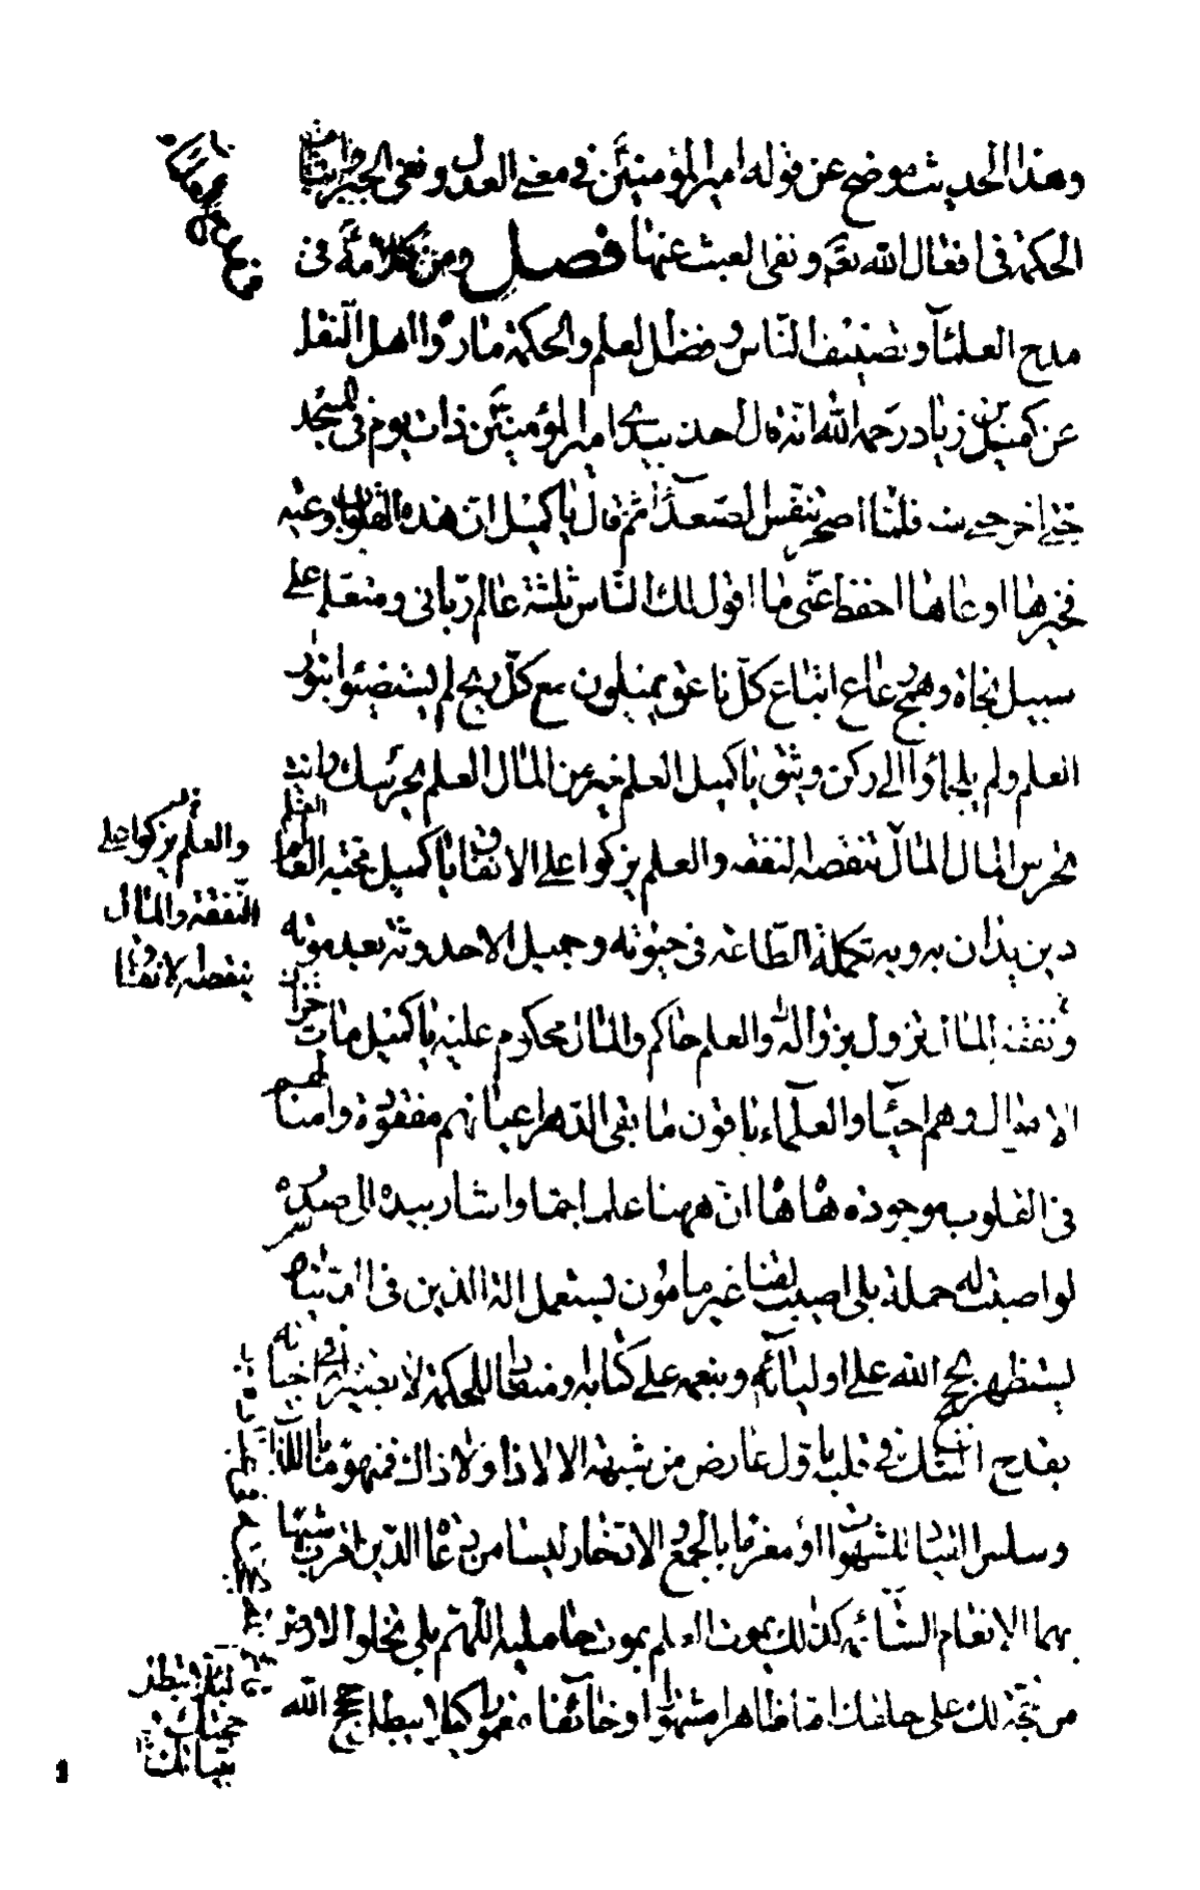 وهذا الحديث موضح عن قوله امير المؤمنين في معنى العدل ونفى الجبر واثبات
الحكمة فى افعال الله تعم ونفى العبث عنها فصل ومن كلامه فى
مدح العلماء وتصنيف الناس وفضل العلم والحكمة ما رواه اهل النقل
عن كميل بن زياد رحمه الله انه قال اخذ بيدى امير المؤمنين ذات يوم فى المسجد
حتى اخرجنى منه فلما اصحر تنفس الصعداء ثم قال يا كميل ان هذه القلوب اوعية
فخيرها اوعاها احفظ عنى ما اقول لك الناس ثلثة عالم ربانى ومتعلم على
سبيل نجاة وهمج رعاع اتباع كل ناعق يميلون مع كل ريح لم يستضيئوا بنور
العلم ولم يلجاوا الى ركن وثيق يا كميل العلم خير من المال العلم يحرسك وانت
تحرس المال المال تنقصه النفقه والعلم يزكوا على الانفاق يا كميل محبة العالم العلم
دين يدان به وبه تكملة الطاعه فى حيوته وجميل الاحدوثة بعد موته
ومنفعة المال تزول بزواله والعلم حاكم والمال محكوم عليه يا كميل مات خزان
الاموال وهم احياء والعلماء باقون ما بقى الدهر اعيانهم مفقودة وامثالهم
فى القلوب موجوده هاه هاه ان ههنا علما جما واشار بيده الى صدره
لو اصبت له حملة بلى اصيب لقنا غير مامون يستعمل الة الدين فى الدنيا
يستظهر بحجج الله على اوليائه وبنعمه على كتابه ومنقادا للحكمة لا بصيرة له فى احنائه
يقدح الشك فى قلبه باول عارض من شبهه الا لا ذا ولا ذاك فمنهوما باللذات
وسلس القياد للشهوات او مغرما بالجمع والادخار ليسا من رعاة الدين اقرب شبها
بهما الانعام السائمه كذلك يموت العلم بموت حامليه اللهم بلى لا تخلوا الارض
من حجة لك على خلقك اما ظاهرا مشهورا او خائفا مغمورا كيلا يبطل حجج الله
والعلم يزكوا على
النفقة والمال
ينقصه الانفاق
لئلا تبطل
حججك
وبيناتك